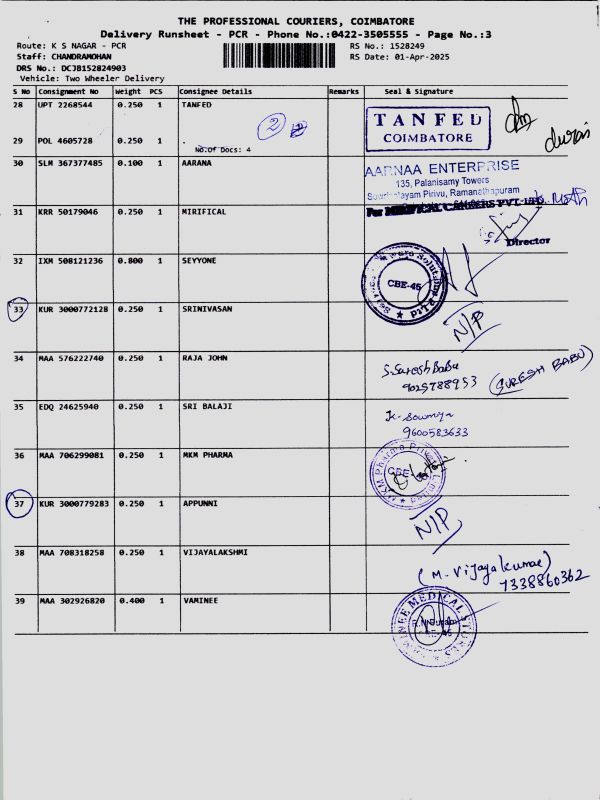 THE PROFESSIONAL COURIERS, COIMBATORE
Delivery Runsheet - PCR - Phone No.:0422-3505555 - Page No.:3
Route: K S NAGAR - PCR
RS No.: 1528249
Staff: CHANDRAMOHAN
RS Date: 01-Apr-2025
DRS No.: DCJB152824903
Vehicle: Two Wheeler Delivery
S No Consignment No Weight PCS Consignee Details Remarks Seal & Signature
28 UPT 2268544 0.250 1 TANFED
2
TANFED
COIMBATORE
29 POL 4605728 0.250 1 .
No.Of Docs: 4
30 SLM 367377485 0.100 1 AARANA
AARNAA ENTERPRISE
135, Palanisamy Towers
Pirivu, Ramanathapuram
31 KRR 50179046 0.250 1 MIRIFICAL
For MIRIFICAL CAREERS PVT. LTD.
Director
32 IXM 508121236 0.800 1 SEYYONE
CBE-45
33 KUR 3000772128 0.250 1 SRINIVASAN
N/P
34 MAA 576222740 0.250 1 RAJA JOHN
S. Suresh Babu
9025788953
(SURESH BABU)
35 EDQ 24625940 0.250 1 SRI BALAJI
K. Sowmya
9600583633
36 MAA 706299081 0.250 1 MKM PHARMA
MKM Pharma Private Limited
37 KUR 3000779283 0.250 1 APPUNNI
N/P
38 MAA 708318258 0.250 1 VIJAYALAKSHMI
(M. Vijayakumar)
7338860362
39 MAA 302926820 0.400 1 VAMINEE
VAMINEE MEDICAL STORES